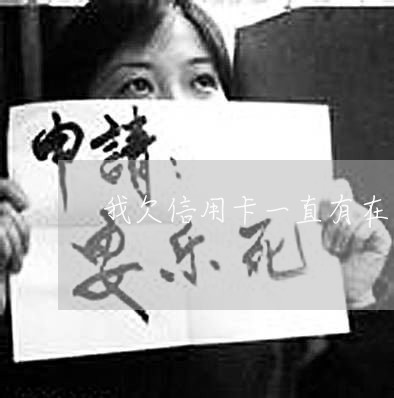 申請：
我欠信用卡一直有在
安乐死